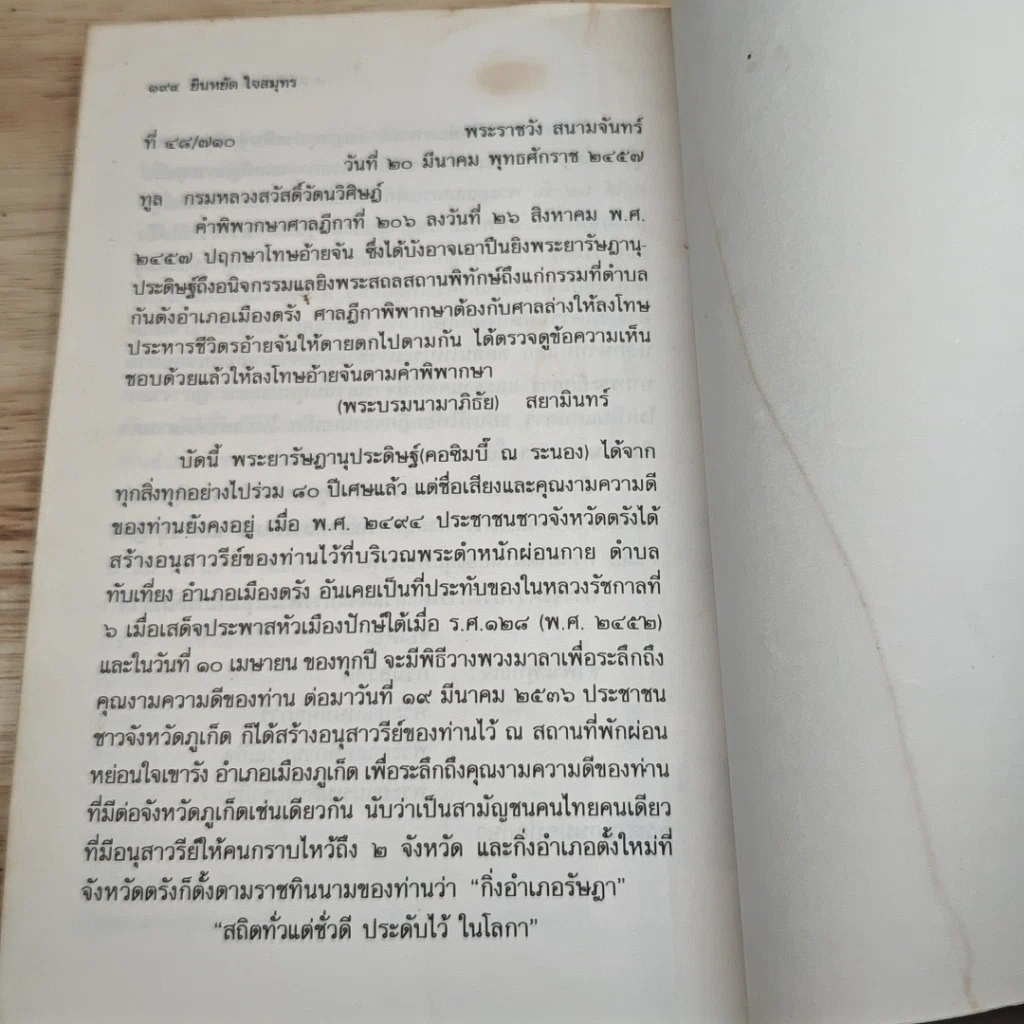 ๑๙๔ ยินหยัด ใจสมุทร
ที่ ๔๘/๗๑๐ พระราชวัง สนามจันทร์
วันที่ ๒๐ มีนาคม พุทธศักราช ๒๔๕๗
ทูล กรมหลวงสวัสดิ์วัดนวิศิษฎ์
คำพิพากษาศาลฎีกาที่ ๒๐๖ ลงวันที่ ๒๖ สิงหาคม พ.ศ.
๒๔๕๗ ปฤกษาโทษอ้ายจัน ซึ่งได้บังอาจเอาปืนยิงพระยารัษฎานุ-
ประดิษฐ์ถึงอนิจกรรมแลยิงพระสถลสถานพิทักษ์ถึงแก่กรรมที่ตำบล
กันตังอำเภอเมืองตรัง ศาลฎีกาพิพากษาต้องกับศาลล่างให้ลงโทษ
ประหารชีวิตรอ้ายจันให้ตายตกไปตามกัน ได้ตรวจดูข้อความเห็น
ชอบด้วยแล้วให้ลงโทษอ้ายจันตามคำพิพากษา
(พระบรมนามาภิธัย) สยามินทร์
บัดนี้ พระยารัษฎานุประดิษฐ์(คอซิมบี๊ ณ ระนอง) ได้จาก
ทุกสิ่งทุกอย่างไปร่วม ๘๐ ปีเศษแล้ว แต่ชื่อเสียงและคุณงามความดี
ของท่านยังคงอยู่ เมื่อ พ.ศ. ๒๔๙๔ ประชาชนชาวจังหวัดตรังได้
สร้างอนุสาวรีย์ของท่านไว้ที่บริเวณพระตำหนักผ่อนกาย ตำบล
ทับเที่ยง อำเภอเมืองตรัง อันเคยเป็นที่ประทับของในหลวงรัชกาลที่
๖ เมื่อเสด็จประพาสหัวเมืองปักษ์ใต้เมื่อ ร.ศ.๑๒๘ (พ.ศ. ๒๔๕๒)
และในวันที่ ๑๐ เมษายน ของทุกปี จะมีพิธีวางพวงมาลาเพื่อระลึกถึง
คุณงามความดีของท่าน ต่อมาวันที่ ๑๙ มีนาคม ๒๕๓๖ ประชาชน
ชาวจังหวัดภูเก็ต ก็ได้สร้างอนุสาวรีย์ของท่านไว้ ณ สถานที่พักผ่อน
หย่อนใจเขารัง อำเภอเมืองภูเก็ต เพื่อระลึกถึงคุณงามความดีของท่าน
ที่มีต่อจังหวัดภูเก็ตเช่นเดียวกัน นับว่าเป็นสามัญชนคนไทยคนเดียว
ที่มีอนุสาวรีย์ให้คนกราบไหว้ถึง ๒ จังหวัด และกิ่งอำเภอตั้งใหม่ที่
จังหวัดตรังก็ตั้งตามราชทินนามของท่านว่า “กิ่งอำเภอรัษฎา”
“สถิตทั่วแต่ชั่วดี ประดับไว้ ในโลกา”